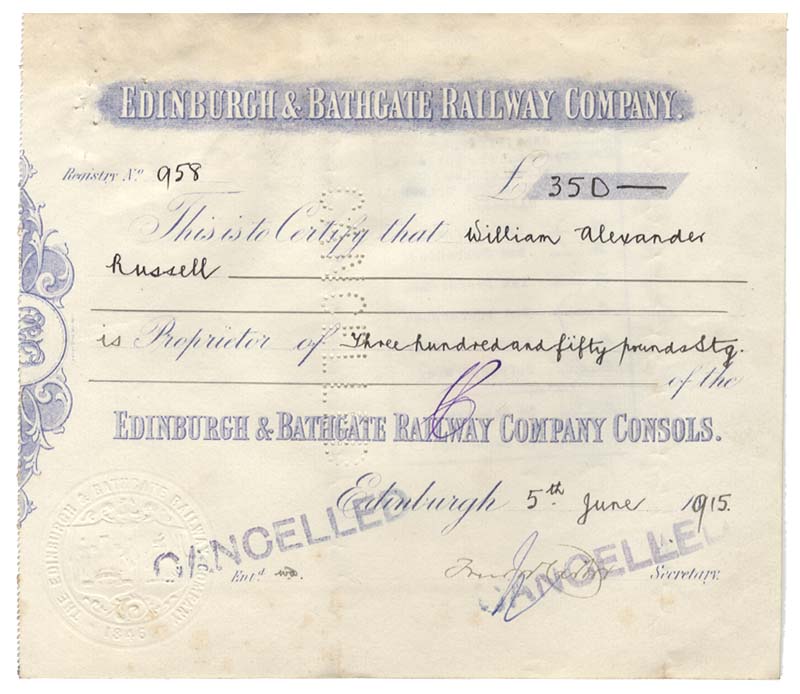 EDINBURGH & BATHGATE RAILWAY COMPANY.
Registry No. 958
£ 350 —
This is to Certify that William Alexander
Russell
is Proprietor of Three hundred and fifty pounds Stg.
of the
EDINBURGH & BATHGATE RAILWAY COMPANY CONSOLS.
Edinburgh 5th June 1915.
CANCELLED
CANCELLED
Entd.
Secretary.
THE EDINBURGH & BATHGATE RAILWAY COMPANY
1846
CANCELLED